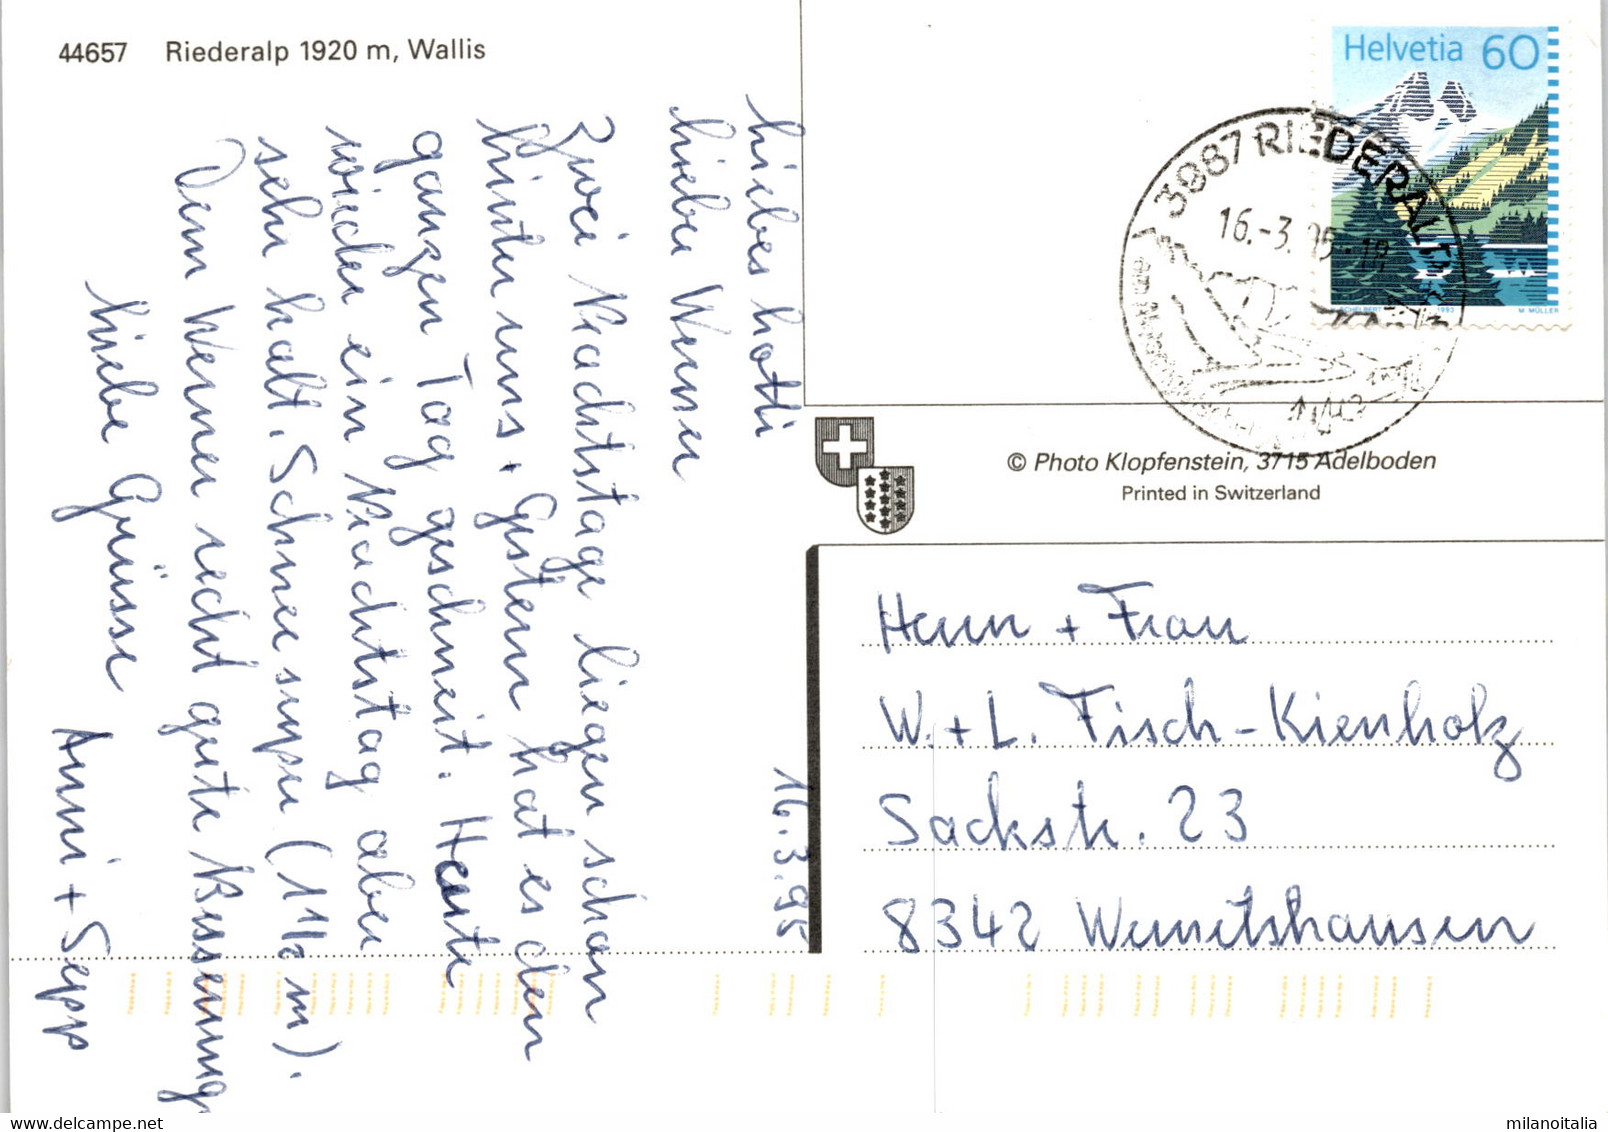 44657 Riederalp 1920 m, Wallis
16.3.95
Liebes Lotti
Lieber Werner
Zwei Prachtstage liegen schon
hinter uns + Gestern hat es den
ganzen Tag geschneit. Heute
wieder ein Prachtstag aber
sehr kalt. Schnee super (1 1/2 m).
Dem Werner recht gute Besserung
Liebe Grüsse
Anni + Sepp
Helvetia 60
1993 M. MÜLLER
3987 RIEDERALP
16.-3. 95-18
© Photo Klopfenstein, 3715 Adelboden
Printed in Switzerland
Herrn + Frau
W. + L. Fisch-Kienholz
Sackstr. 23
8342 Wernetshausen
milanoitalia